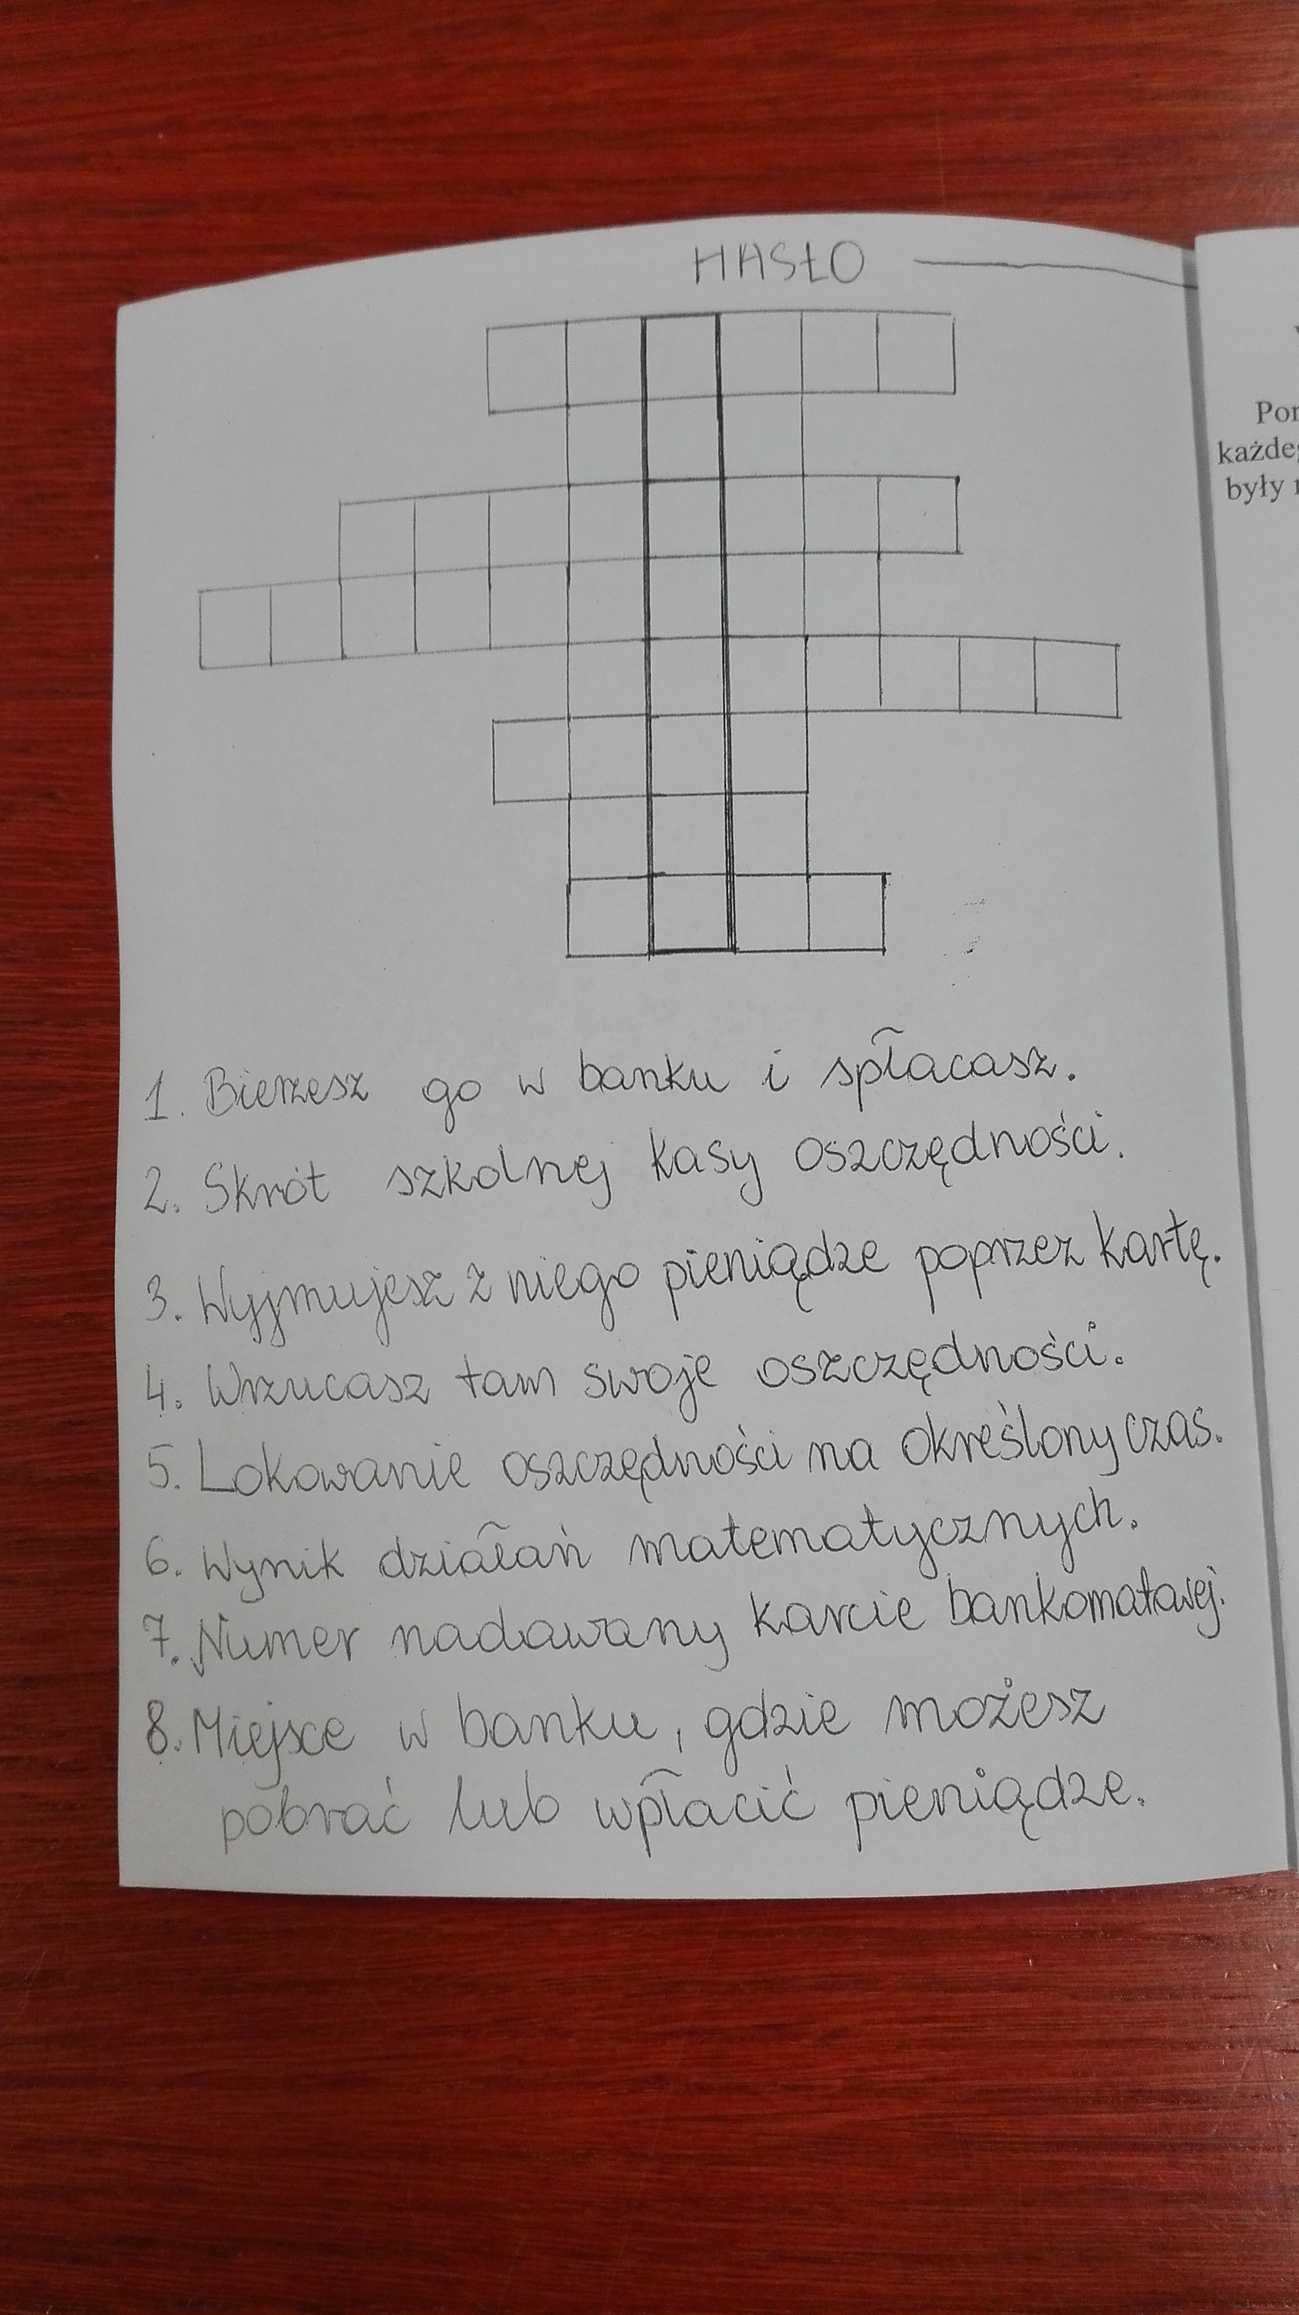 HASŁO
Por
każdeg
były
1. Bierzesz go w banku i spłacasz.
2. Skrót szkolnej kasy oszczędności.
3. Wyjmujesz z niego pieniądze poprzez kartę.
4. Wrzucasz tam swoje oszczędności.
5. Lokowanie oszczędności na określony czas.
6. Wynik działań matematycznych.
7. Numer nadawany karcie bankomatowej.
8. Miejsce w banku, gdzie możesz
pobrać lub wpłacić pieniądze.